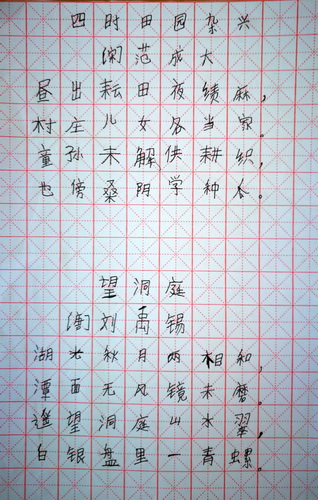 四时田园杂兴
范成大
昼出耘田夜绩麻，
村庄儿女各当家。
童孙未解供耕织，
也傍桑阴学种瓜。
望洞庭
刘禹锡
湖光秋月两相和，
潭面无风镜未磨。
遥望洞庭山水翠，
白银盘里一青螺。